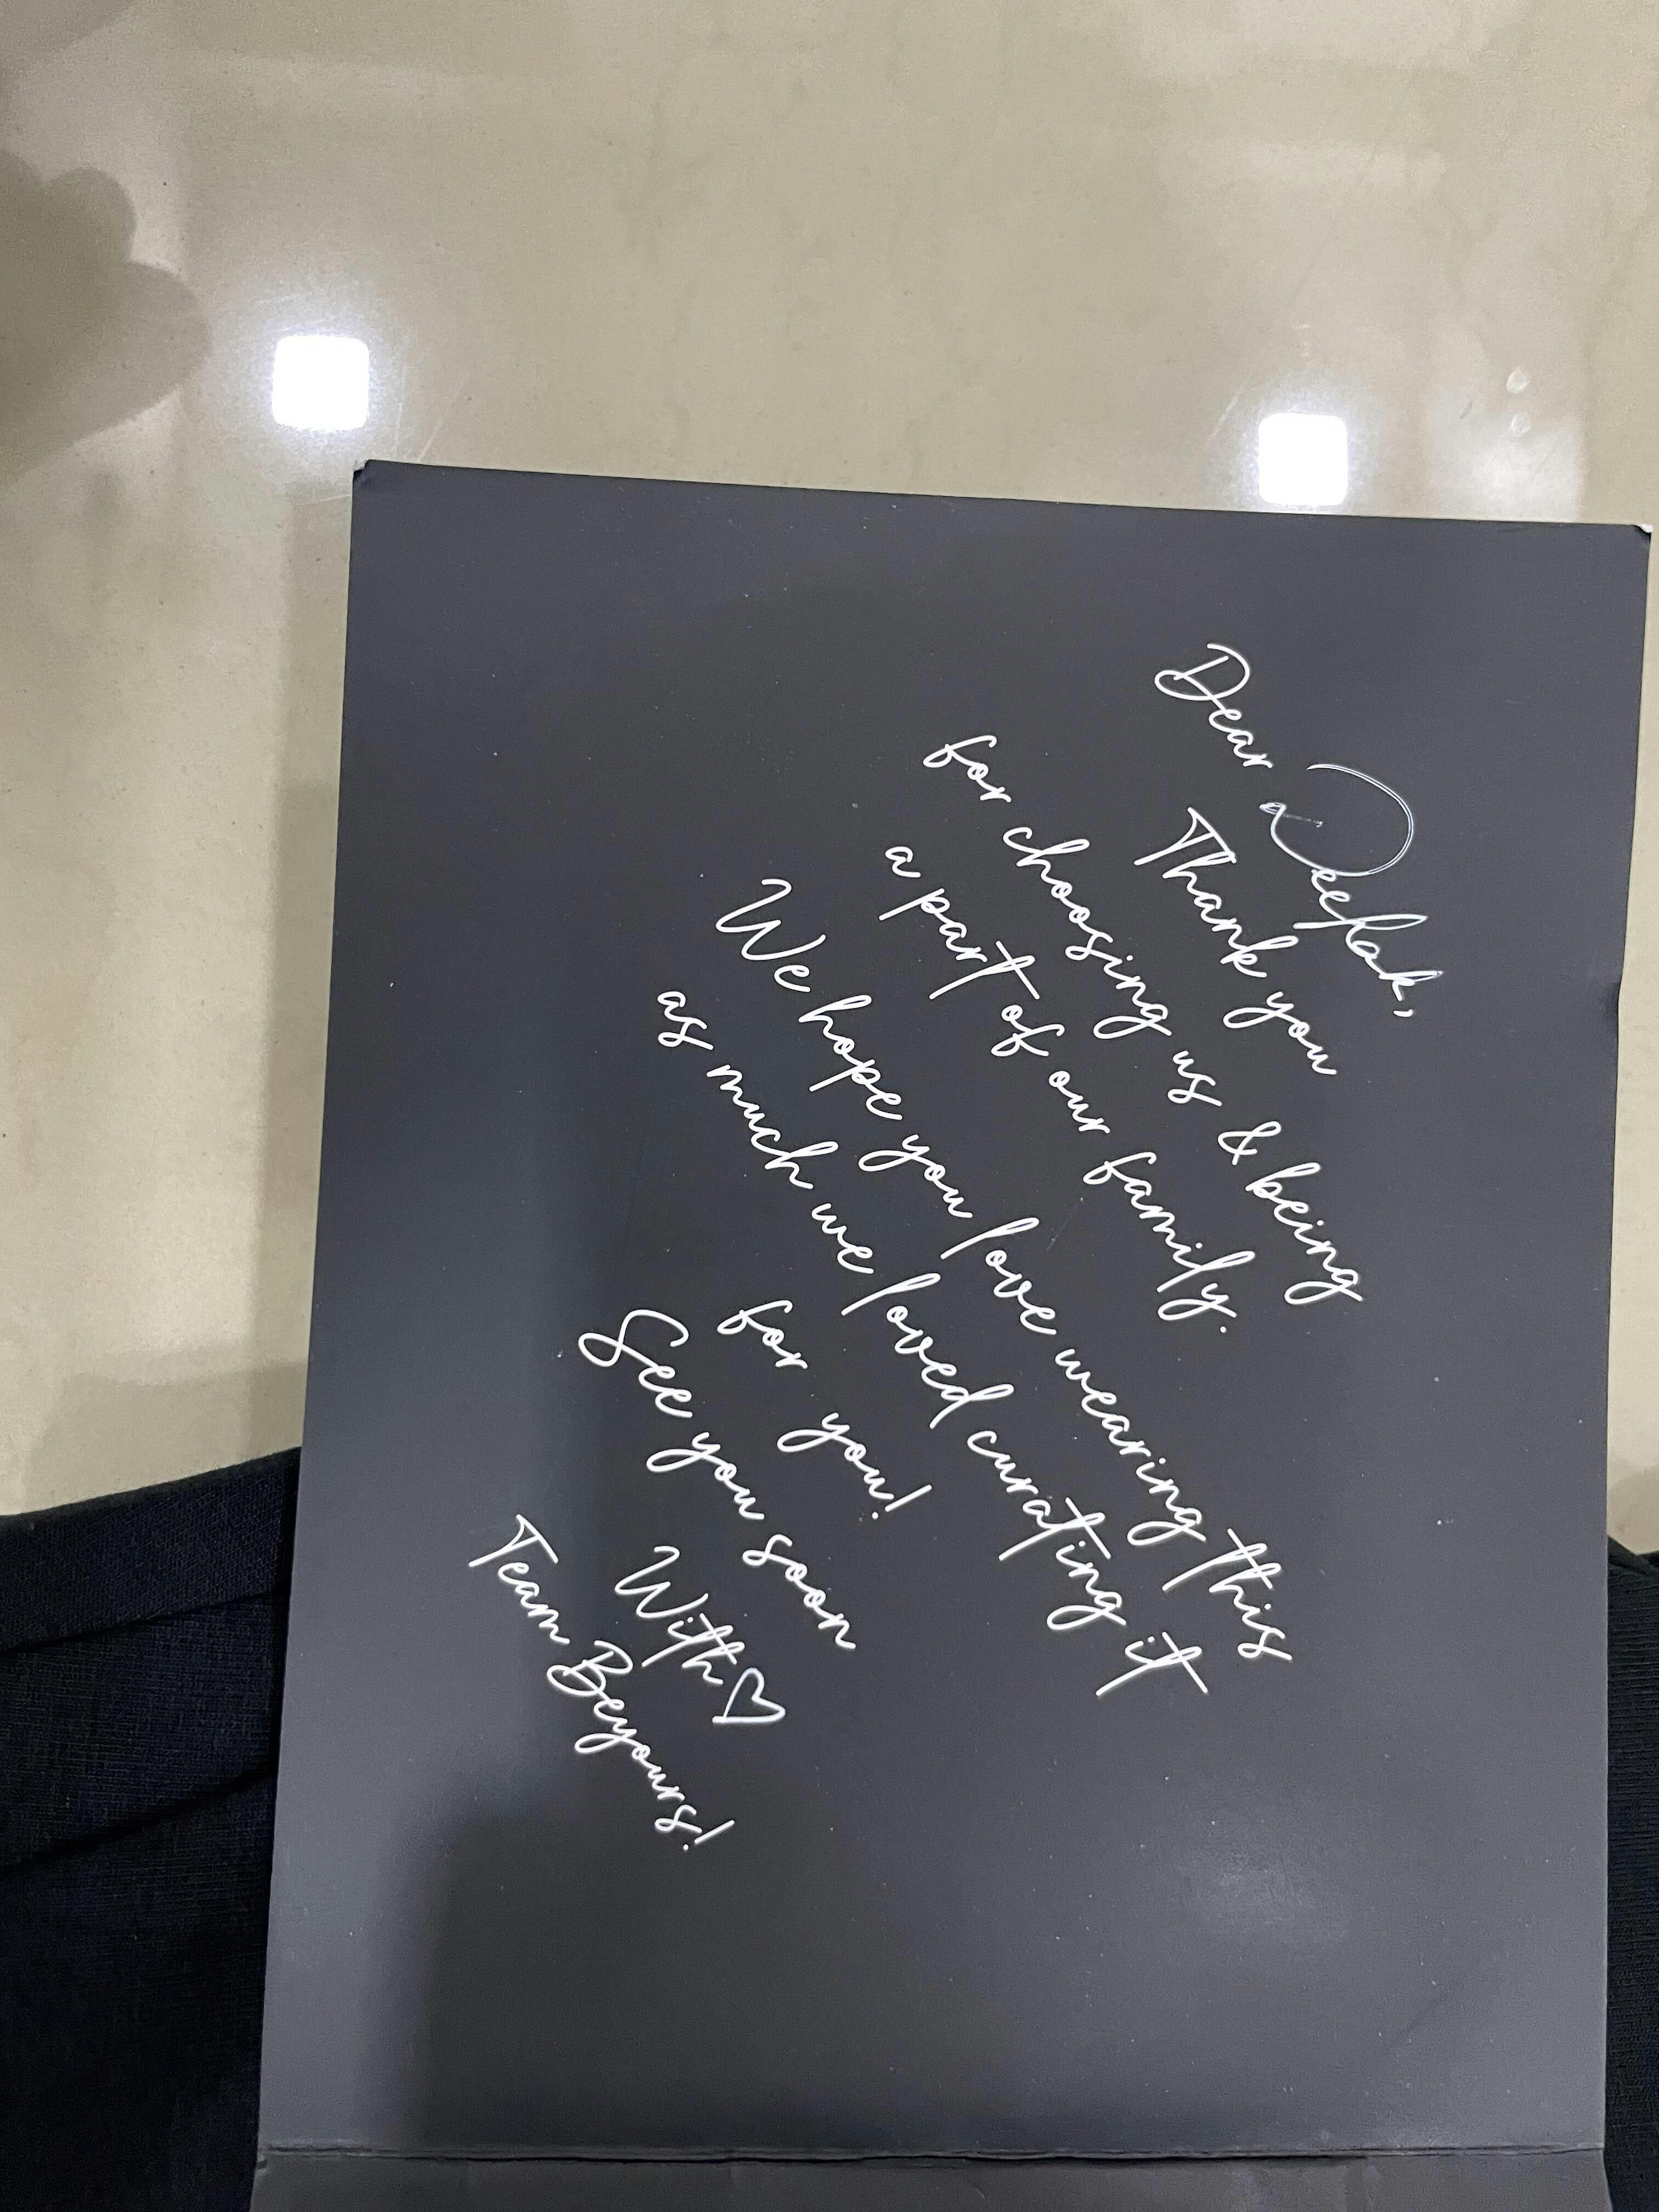 Dear Deepak,
Thank you
for choosing us & being
a part of our family.
We hope you love wearing this
as much we loved curating it
for you!
See you soon
With ♡
Team Beyours!